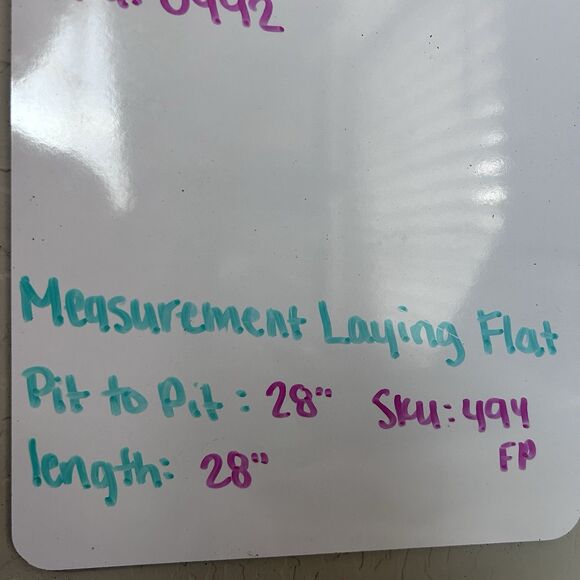 0492
Measurement Laying Flat
Pit to Pit: 28" Sku: 494
length: 28" FP